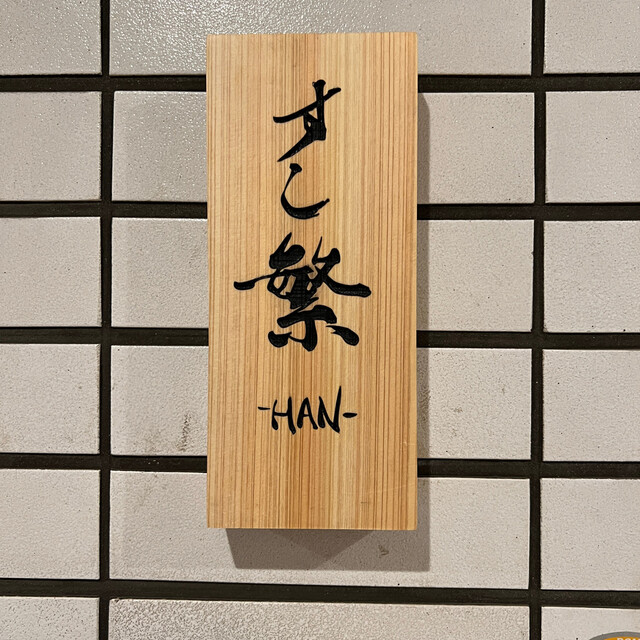 すし
繁
-HAN-